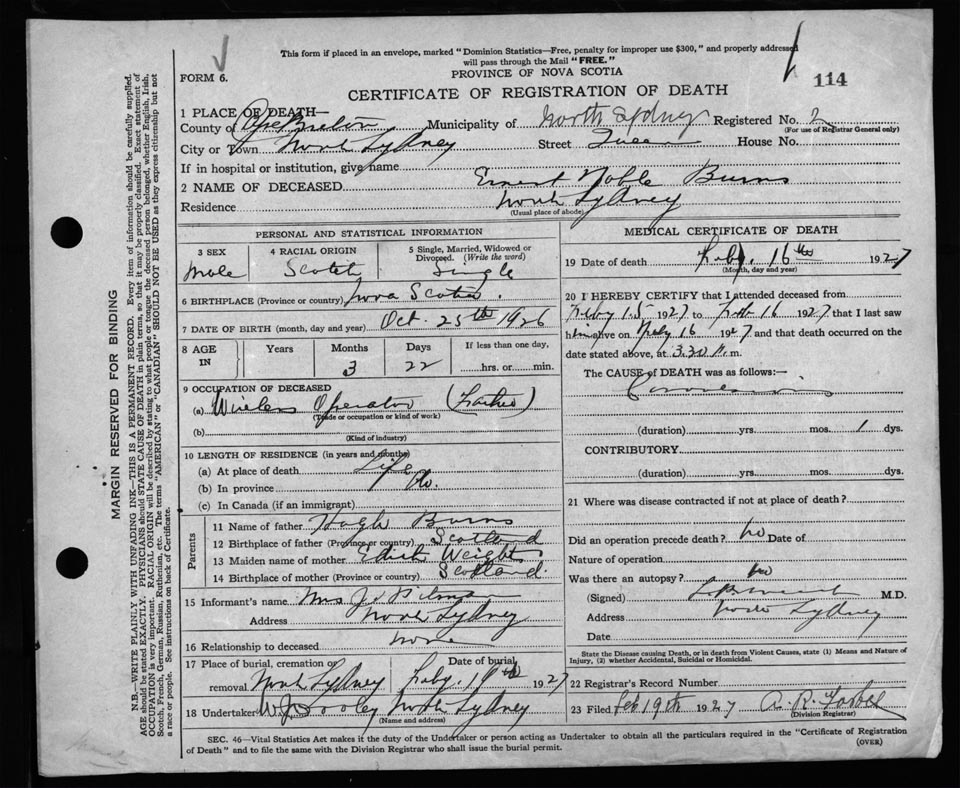 This form if placed in an envelope, marked "Dominion Statistics—Free, penalty for improper use $300," and properly addressed
will pass through the Mail "FREE."
FORM 6.
PROVINCE OF NOVA SCOTIA
114
CERTIFICATE OF REGISTRATION OF DEATH
1 PLACE OF DEATH—
County of Cape Breton Municipality of North Sydney Registered No. 2
(For use of Registrar General only)
City or Town North Sydney Street Queen House No.
If in hospital or institution, give name
2 NAME OF DECEASED Ernest Noble Burns
Residence North Sydney
(Usual place of abode)
PERSONAL AND STATISTICAL INFORMATION
3 SEX 4 RACIAL ORIGIN 5 Single, Married, Widowed or
Divorced. (Write the word)
Male Scotch Single
6 BIRTHPLACE (Province or country) Nova Scotia.
7 DATE OF BIRTH (month, day and year) Oct. 25th 1926
8 AGE IN Years Months Days If less than one day,
3 22 hrs. or min.
9 OCCUPATION OF DECEASED
(a) Wireless Operator (Father)
(Trade or occupation or kind of work)
(b)
(Kind of industry)
10 LENGTH OF RESIDENCE (in years and months)
(a) At place of death Life
(b) In province do.
(c) In Canada (if an immigrant)
Parents
11 Name of father Hugh Burns
12 Birthplace of father (Province or country) Scotland
13 Maiden name of mother Edith Weights
14 Birthplace of mother (Province or country) Scotland.
15 Informant's name Mrs J.
Address North Sydney
16 Relationship to deceased none
17 Place of burial, cremation or Date of burial
removal North Sydney Feby. 19th 1927
18 Undertaker W J Dooley North Sydney
(Name and address)
MEDICAL CERTIFICATE OF DEATH
19 Date of death Feby. 16th 1927
(Month, day and year)
20 I HEREBY CERTIFY that I attended deceased from
Feby 15 1927 to Feb 16 1927 that I last saw
him alive on Feby 16 1927 and that death occurred on the
date stated above, at 3.30 m.
The CAUSE of DEATH was as follows:—
(duration) yrs. mos. 1 dys.
CONTRIBUTORY
(duration) yrs. mos. dys.
21 Where was disease contracted if not at place of death?
Did an operation precede death? no Date of
Nature of operation
Was there an autopsy? no
(Signed) M.D.
Address North Sydney
Date
State the Disease causing Death, or in death from Violent Causes, state (1) Means and Nature of
Injury, (2) whether Accidental, Suicidal or Homicidal.
22 Registrar's Record Number
23 Filed Feb 19th 1927 A. R. Forbes
(Division Registrar)
SEC. 46—Vital Statistics Act makes it the duty of the Undertaker or person acting as Undertaker to obtain all the particulars required in the "Certificate of Registration
of Death" and to file the same with the Division Registrar who shall issue the burial permit.
(OVER)
MARGIN RESERVED FOR BINDING
N.B.—WRITE PLAINLY WITH UNFADING INK—THIS IS A PERMANENT RECORD. Every item of information should be carefully supplied.
AGE should be stated EXACTLY. PHYSICIANS should STATE CAUSE OF DEATH in plain terms, so that it may be properly classified. Exact statement of
OCCUPATION is very important. RACIAL ORIGIN will be described by stating to what people or tongue the deceased person belonged, whether English, Irish,
Scotch, French, German, Russian, Ruthenian, etc. The terms "AMERICAN" or "CANADIAN" SHOULD NOT BE USED as they express citizenship but not
a race or people. See instructions on back of Certificate.